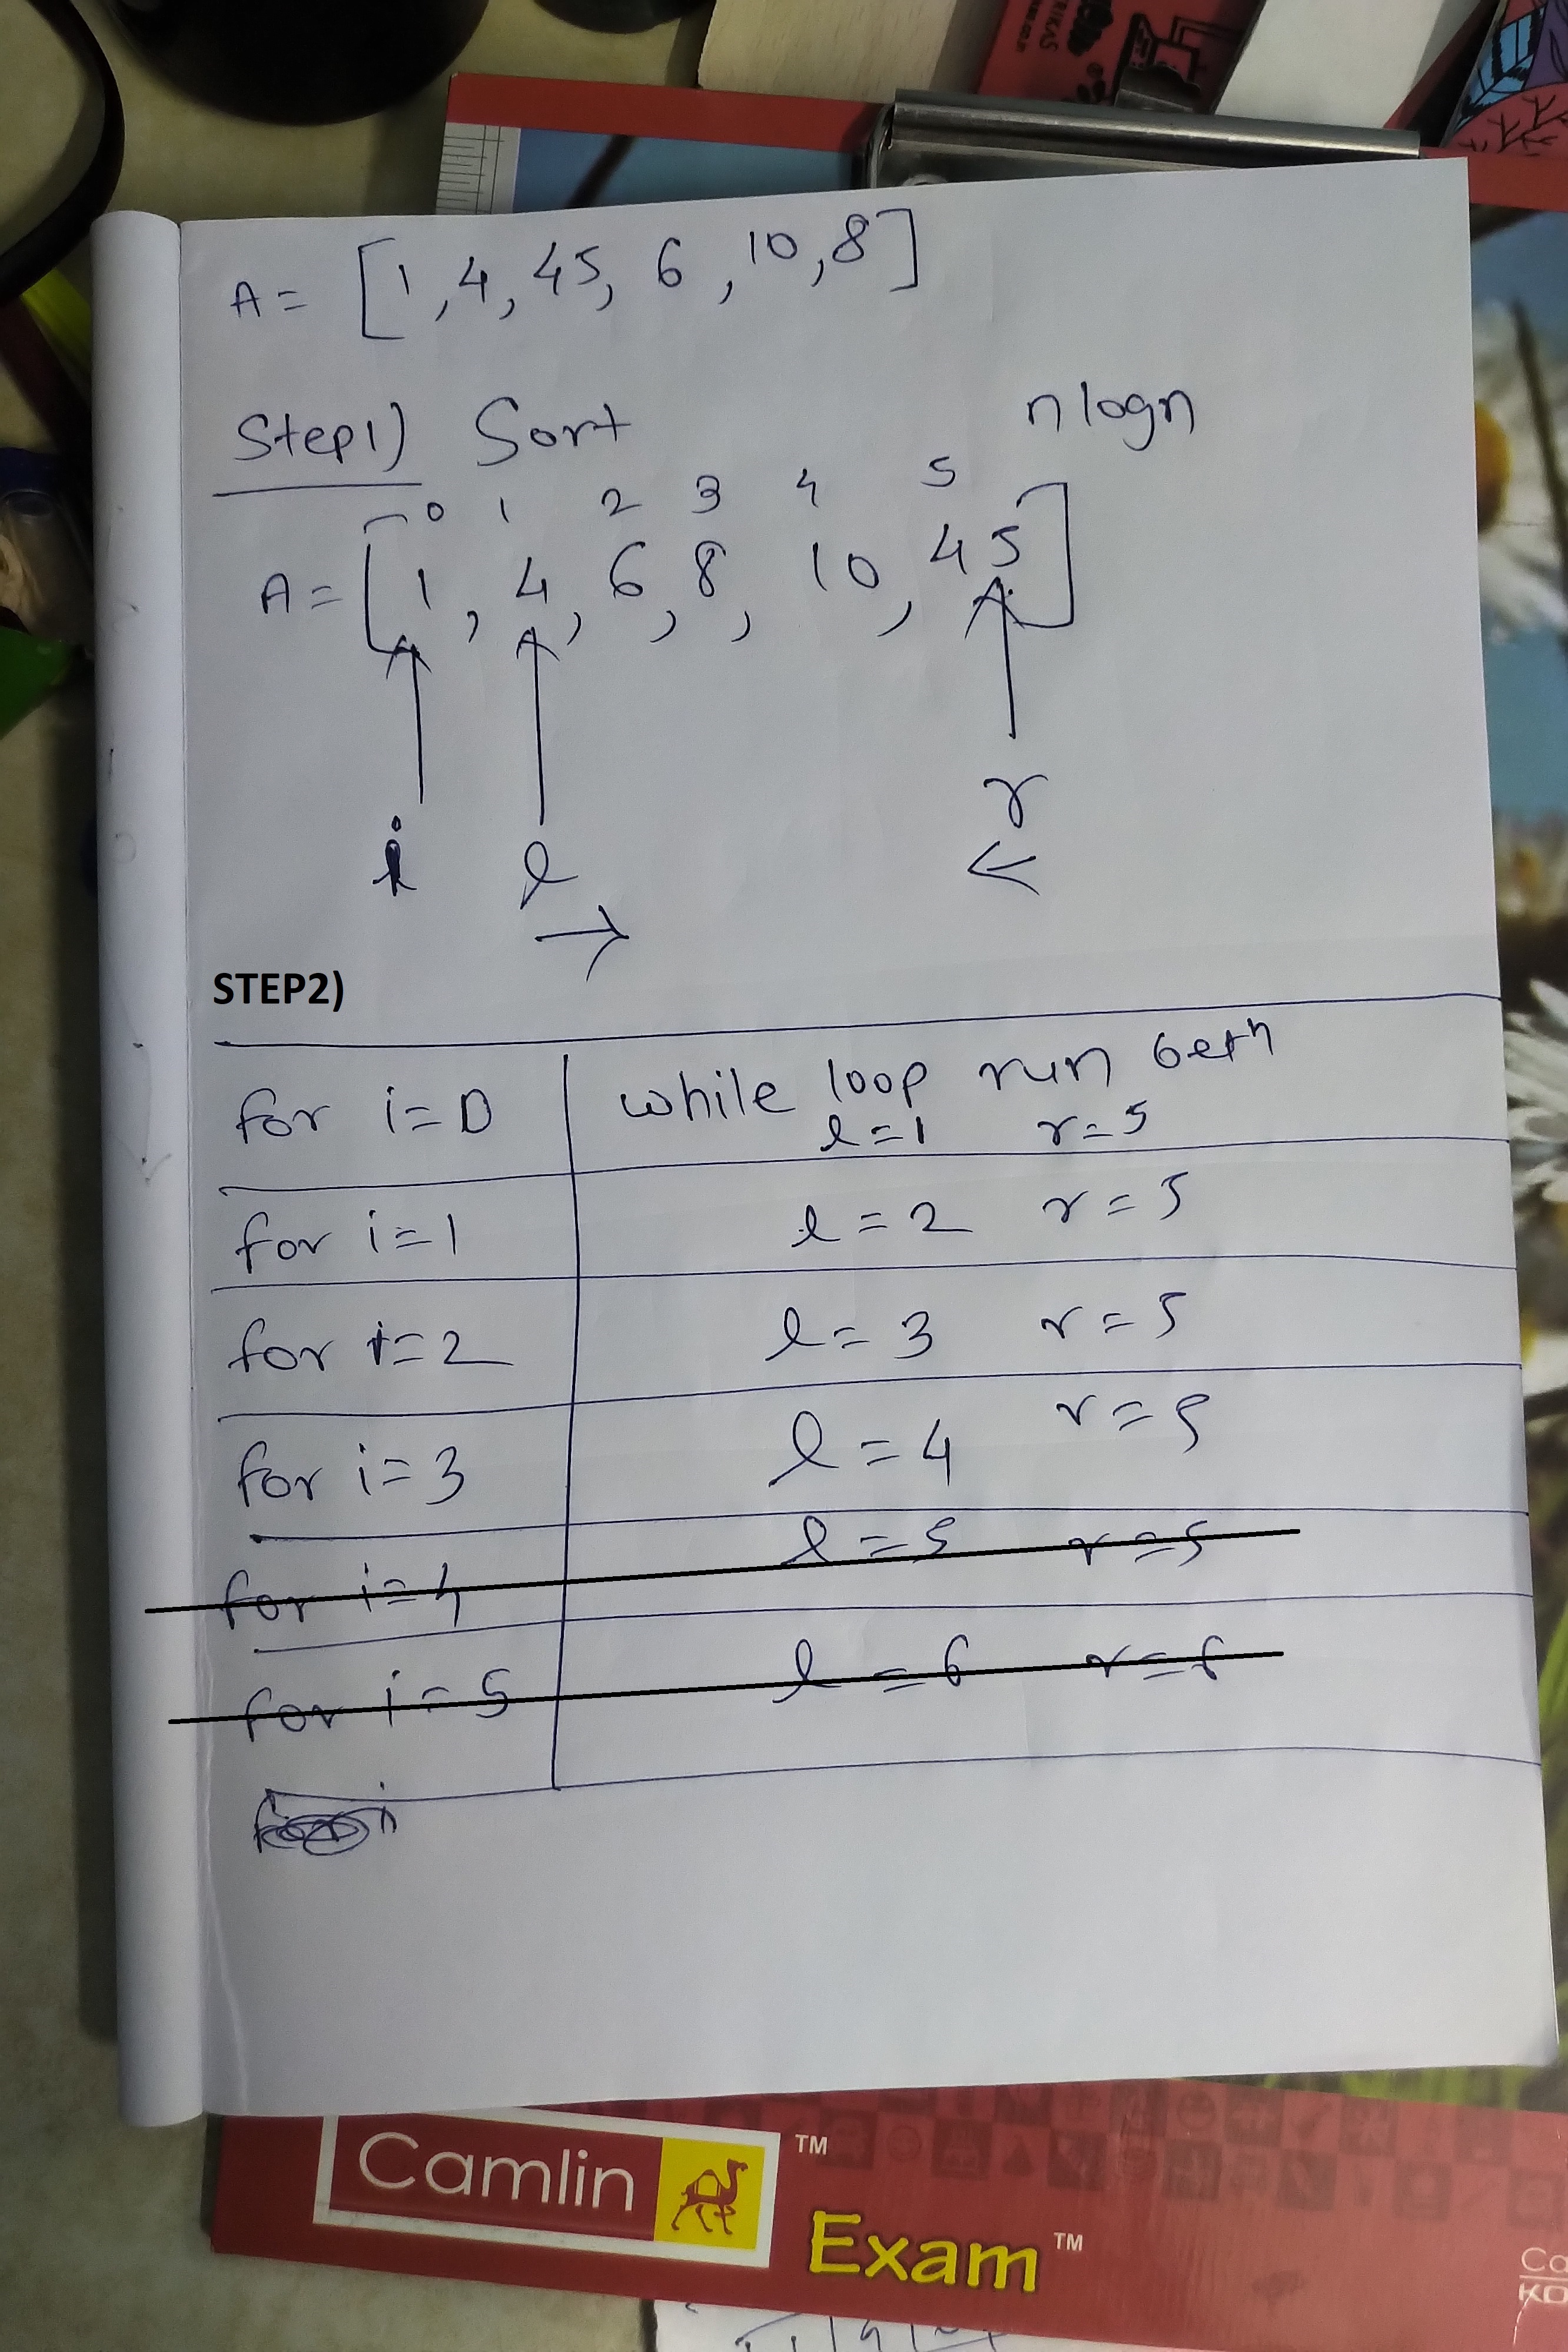 RIKAS
A = [1, 4, 45, 6, 10, 8]
Step1) Sort nlogn
0 1 2 3 4 5
A = [1, 4, 6, 8, 10, 45]
i l r
→ ←
STEP2)
for i=0 while loop run betn
l=1 r=5
for i=1 l=2 r=5
for i=2 l=3 r=5
for i=3 l=4 r=5
for i=4 l=5 r=5
for i=5 l=6 r=6
Camlin TM
Exam TM